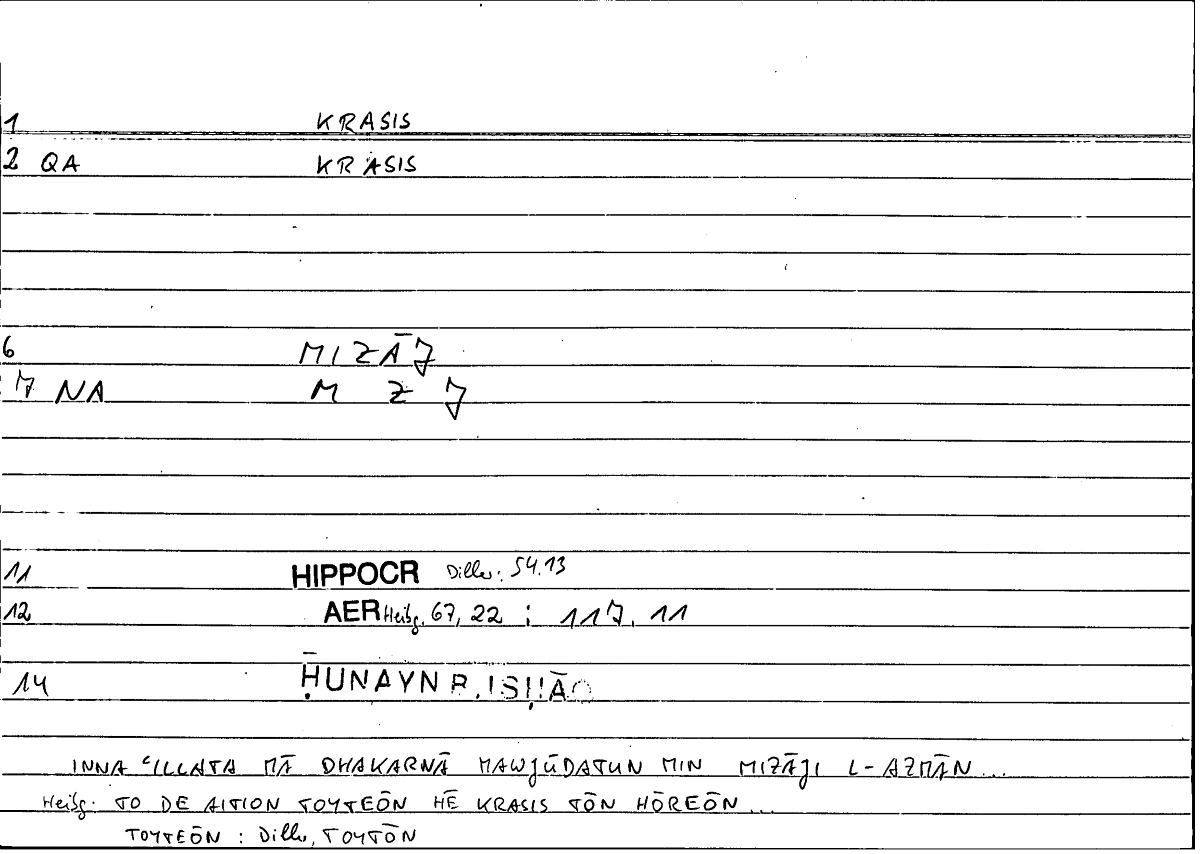 1 KRASIS
2 QA KRASIS
6 MIZĀJ
7 NA M Z J
11 HIPPOCR Diller: 54.13
12 AER Heibg. 67, 22 ; 117, 11
14 ḤUNAYN B. ISḤĀQ
INNA ʿILLATA MĀ DHAKARNĀ MAWJŪDATUN MIN MIZĀJI L-AZMĀN...
Heibg: TO DE AITION TOYTEŌN HĒ KRASIS TŌN HŌREŌN...
TOYTEŌN : Diller, TOYTŌN